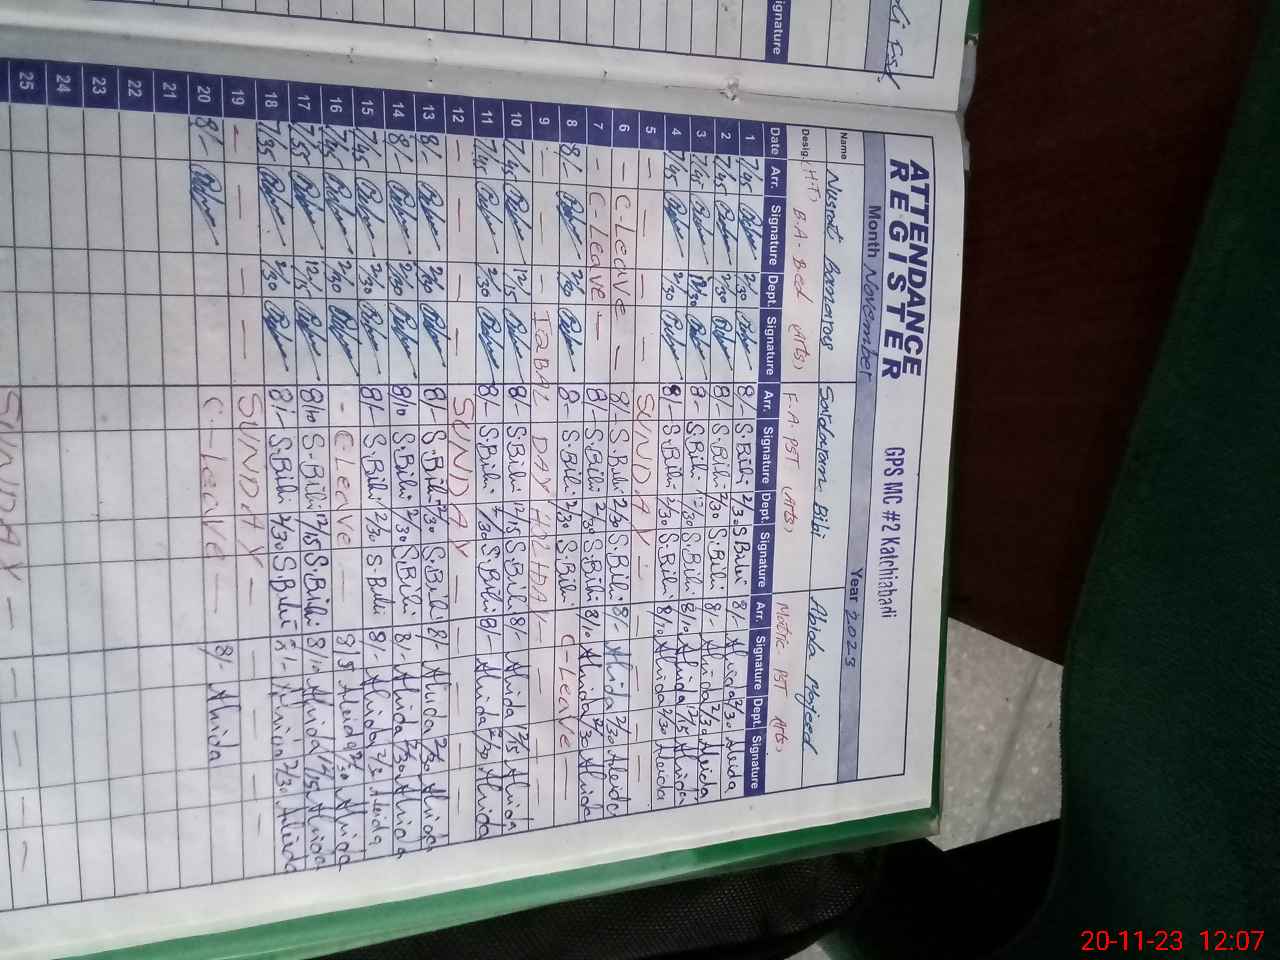 ATTENDANCE REGISTER
GPS MC #2 Katchiabadi
Month November Year 2023
Name Nusrat Sardaram Bibi Abida Majeed
Desig. (H.T) B.A - B.ed (Arts) F.A. PST (Arts) Matric PST Arts)
Date Arr. Signature Dept. Signature Arr. Signature Dept. Signature Arr. Signature Dept. Signature
1 7/45 2/30 8/- S.Bibi 2/30 S.Bibi 8/- Abida 2/30 Abida
2 7/45 2/30 8/- S.Bibi 2/30 S.Bibi 8/- Abida 2/30 Abida
3 7/45 8/- S.Bibi S.Bibi 8/10 Abida 12/15 Abida
4 7/45 2/30 8/- S.Bibi 2/30 S.Bibi 8/10 Abida 2/30 Abida
5 - - - - SUNDAY - - -
6 - C-Leave - 8/- S.Bibi 2/30 S.Bibi 8/- Abida 2/30 Abida
7 - C-Leave - 8/- S.Bibi 2/30 S.Bibi 8/10 Abida 2/30 Abida
8 8/- 2/30 8/- S.Bibi 2/30 S.Bibi C-Leave -
9 - - - IQBAL DAY HOLIDAY - - -
10 7/45 12/15 8/- S.Bibi 12/15 S.Bibi 8/- Abida 12/15 Abida
11 7/45 2/30 8/- S.Bibi 2/30 S.Bibi 8/- Abida 2/30 Abida
12 - - - - SUNDAY - - - -
13 8/- 2/30 8/- S.Bibi 2/30 S.Bibi 8/- Abida 2/30 Abida
14 8/- 2/30 8/10 S.Bibi 2/30 S.Bibi 8/- Abida 2/30 Abida
15 7/45 2/30 8/- S.Bibi 2/30 S.Bibi 8/- Abida 2/30 Abida
16 7/45 2/30 - C-Leave - 8/5 Abida 2/30 Abida
17 7/55 12/15 8/10 S.Bibi 12/15 S.Bibi 8/10 Abida 12/15 Abida
18 7/35 2/30 8/- S.Bibi 2/30 S.Bibi 8/- Abida 2/30 Abida
19 - - - - SUNDAY - - - -
20 8/- C-Leave - 8/- Abida
21
22
23
24
25
SUNDAY - - - -
Signature
20-11-23 12:07